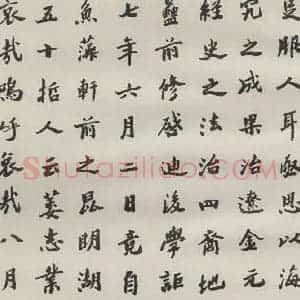 服人耳思以海
究之成果治遼金元
經史之法治四裔地
蠡前修啟迪後學詎
七年六月二日竟自
魚藻軒前之昆明湖
五十哲人云萎志業
哀哉嗚呼哀哉八月
Shufaziliao.com